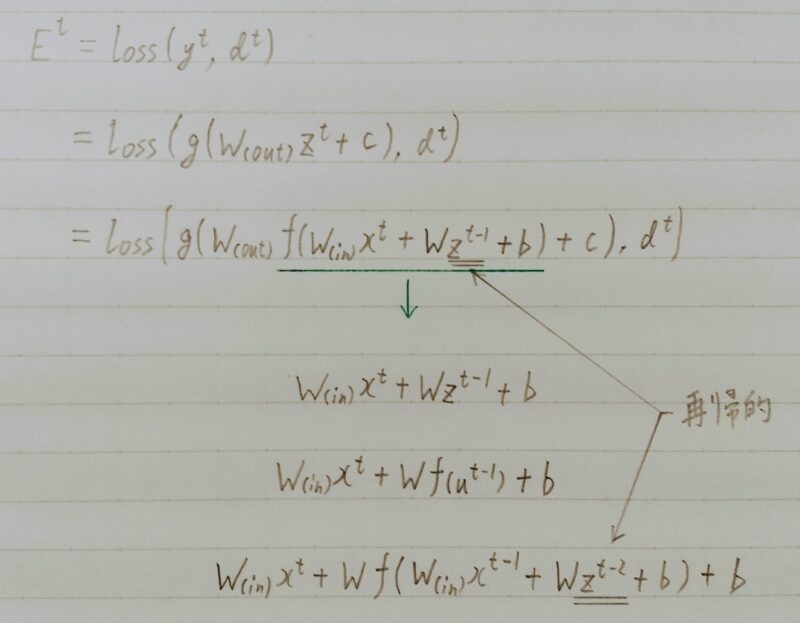 E^t = loss(y^t, d^t)
= loss(g(W(out) z^t + c), d^t)
= loss[g(W(out) f(W(in) x^t + W z^{t-1} + b) + c), d^t)
W(in) x^t + W z^{t-1} + b
再帰的
W(in) x^t + W f(u^{t-1}) + b
W(in) x^t + W f(W(in) x^{t-1} + W z^{t-2} + b) + b